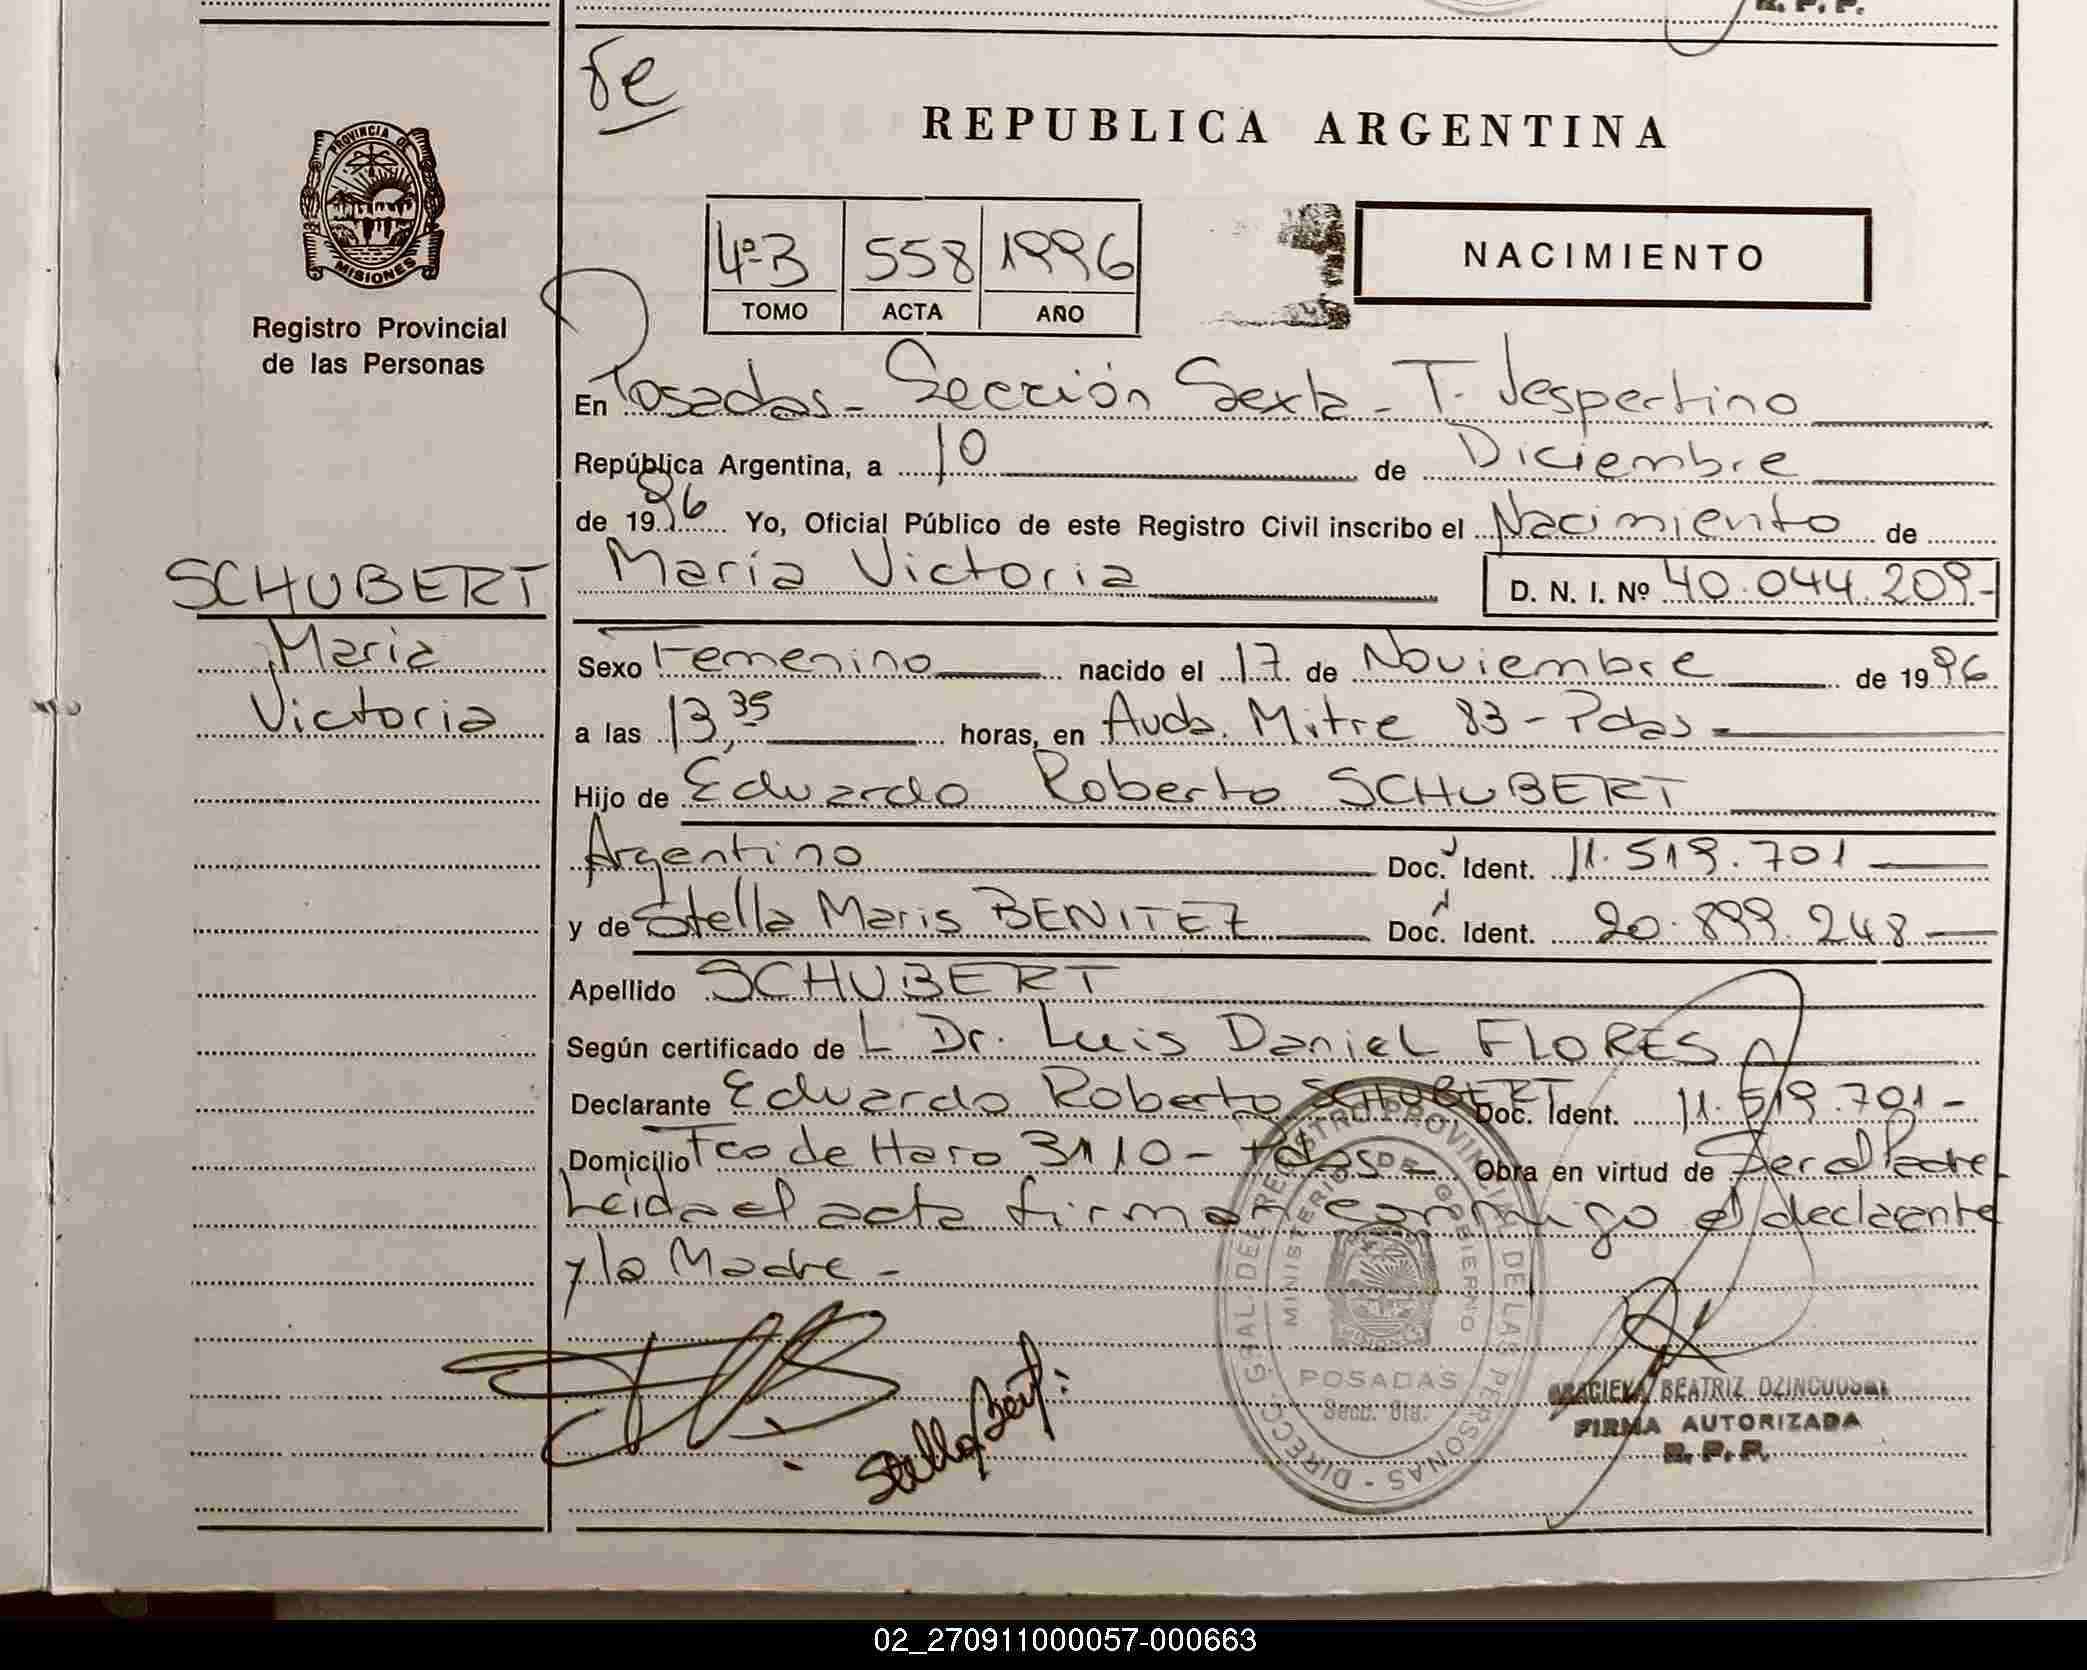 R. P. P.
fe
REPUBLICA ARGENTINA
PROVINCIA DE
MISIONES
Registro Provincial
de las Personas
4º-B 558 1996
TOMO ACTA AÑO
NACIMIENTO
En Posadas - Sección Sexta - T. Vespertino
República Argentina, a 10 de Diciembre
de 1996 Yo, Oficial Público de este Registro Civil inscribo el Nacimiento de
María Victoria D. N. I. Nº 40.044.209-
SCHUBERT
Maria
Victoria
Sexo Femenino nacido el 17 de Noviembre de 1996
a las 13,35 horas, en Avda. Mitre 83 - Pdas -
Hijo de Eduardo Roberto SCHUBERT
Argentino Doc. Ident. 11.519.701
y de Stella Maris BENITEZ Doc. Ident. 20.899.248
Apellido SCHUBERT
Según certificado de L Dr. Luis Daniel FLORES
Declarante Eduardo Roberto SCHUBERT Doc. Ident. 11.519.701-
Domicilio Fco de Haro 3110 - Pdas - Obra en virtud de Ser el Padre
Leida el acta firman conmigo el declarante
y la Madre -
DIRECC. GRAL DEL REGISTRO PROVINCIAL DE LAS PERSONAS -
MINISTERIO DE GOBIERNO
POSADAS
Secc. 6ta.
Stella
GRACIELA BEATRIZ
FIRMA AUTORIZADA
R. P. P.
02_270911000057-000663